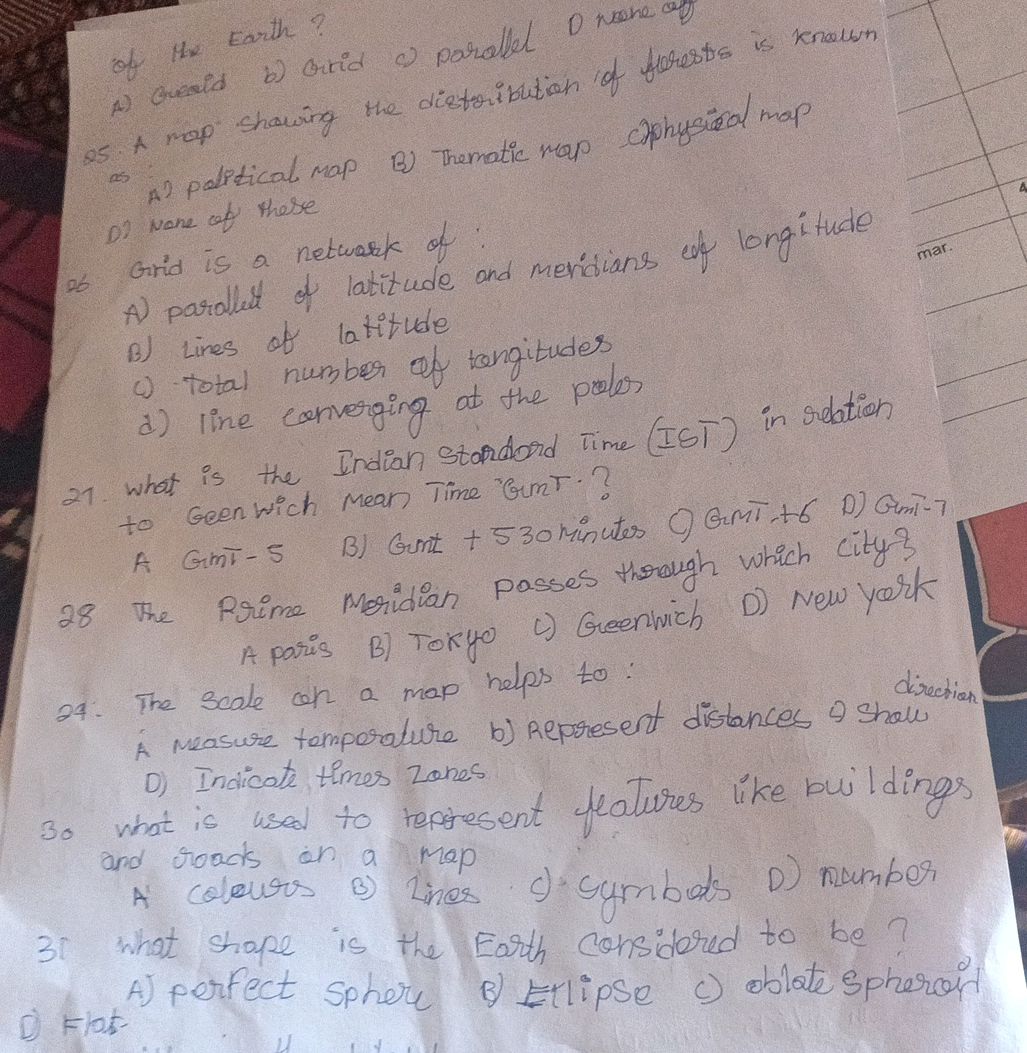 of the Earth ?
A) Gueoid b) Grid c) parallel D None of
25. A map showing the distribution of forests is known
as
A) political map B) Thematic map C) physical map
D) None of these
26 Grid is a network of :
A) parallel of latitude and meridians of longitude
B) Lines of latitude
c) Total number of longitudes
d) line converging at the poles
27. what is the Indian Standard Time (IST) in relation
to Geenwich Mean Time GmT. ?
A GmT - 5 B) Gmt + 530 Minutes C) GMT + 6 D) GmT - 7
28 The Prime Meridian passes through which city?
A paris B) Tokyo c) Greenwich D) New york
29. The scale on a map helps to :
A Measure temperature b) Represent distances C show direction
D) Indicate times zones
30 what is used to represent features like buildings
and roads on a map
A colours B) Lines C) symbols D) number
31 what shape is the Earth considered to be ?
A) perfect sphere B) Ellipse c) oblate spheroid
D) Flat
mar.
4